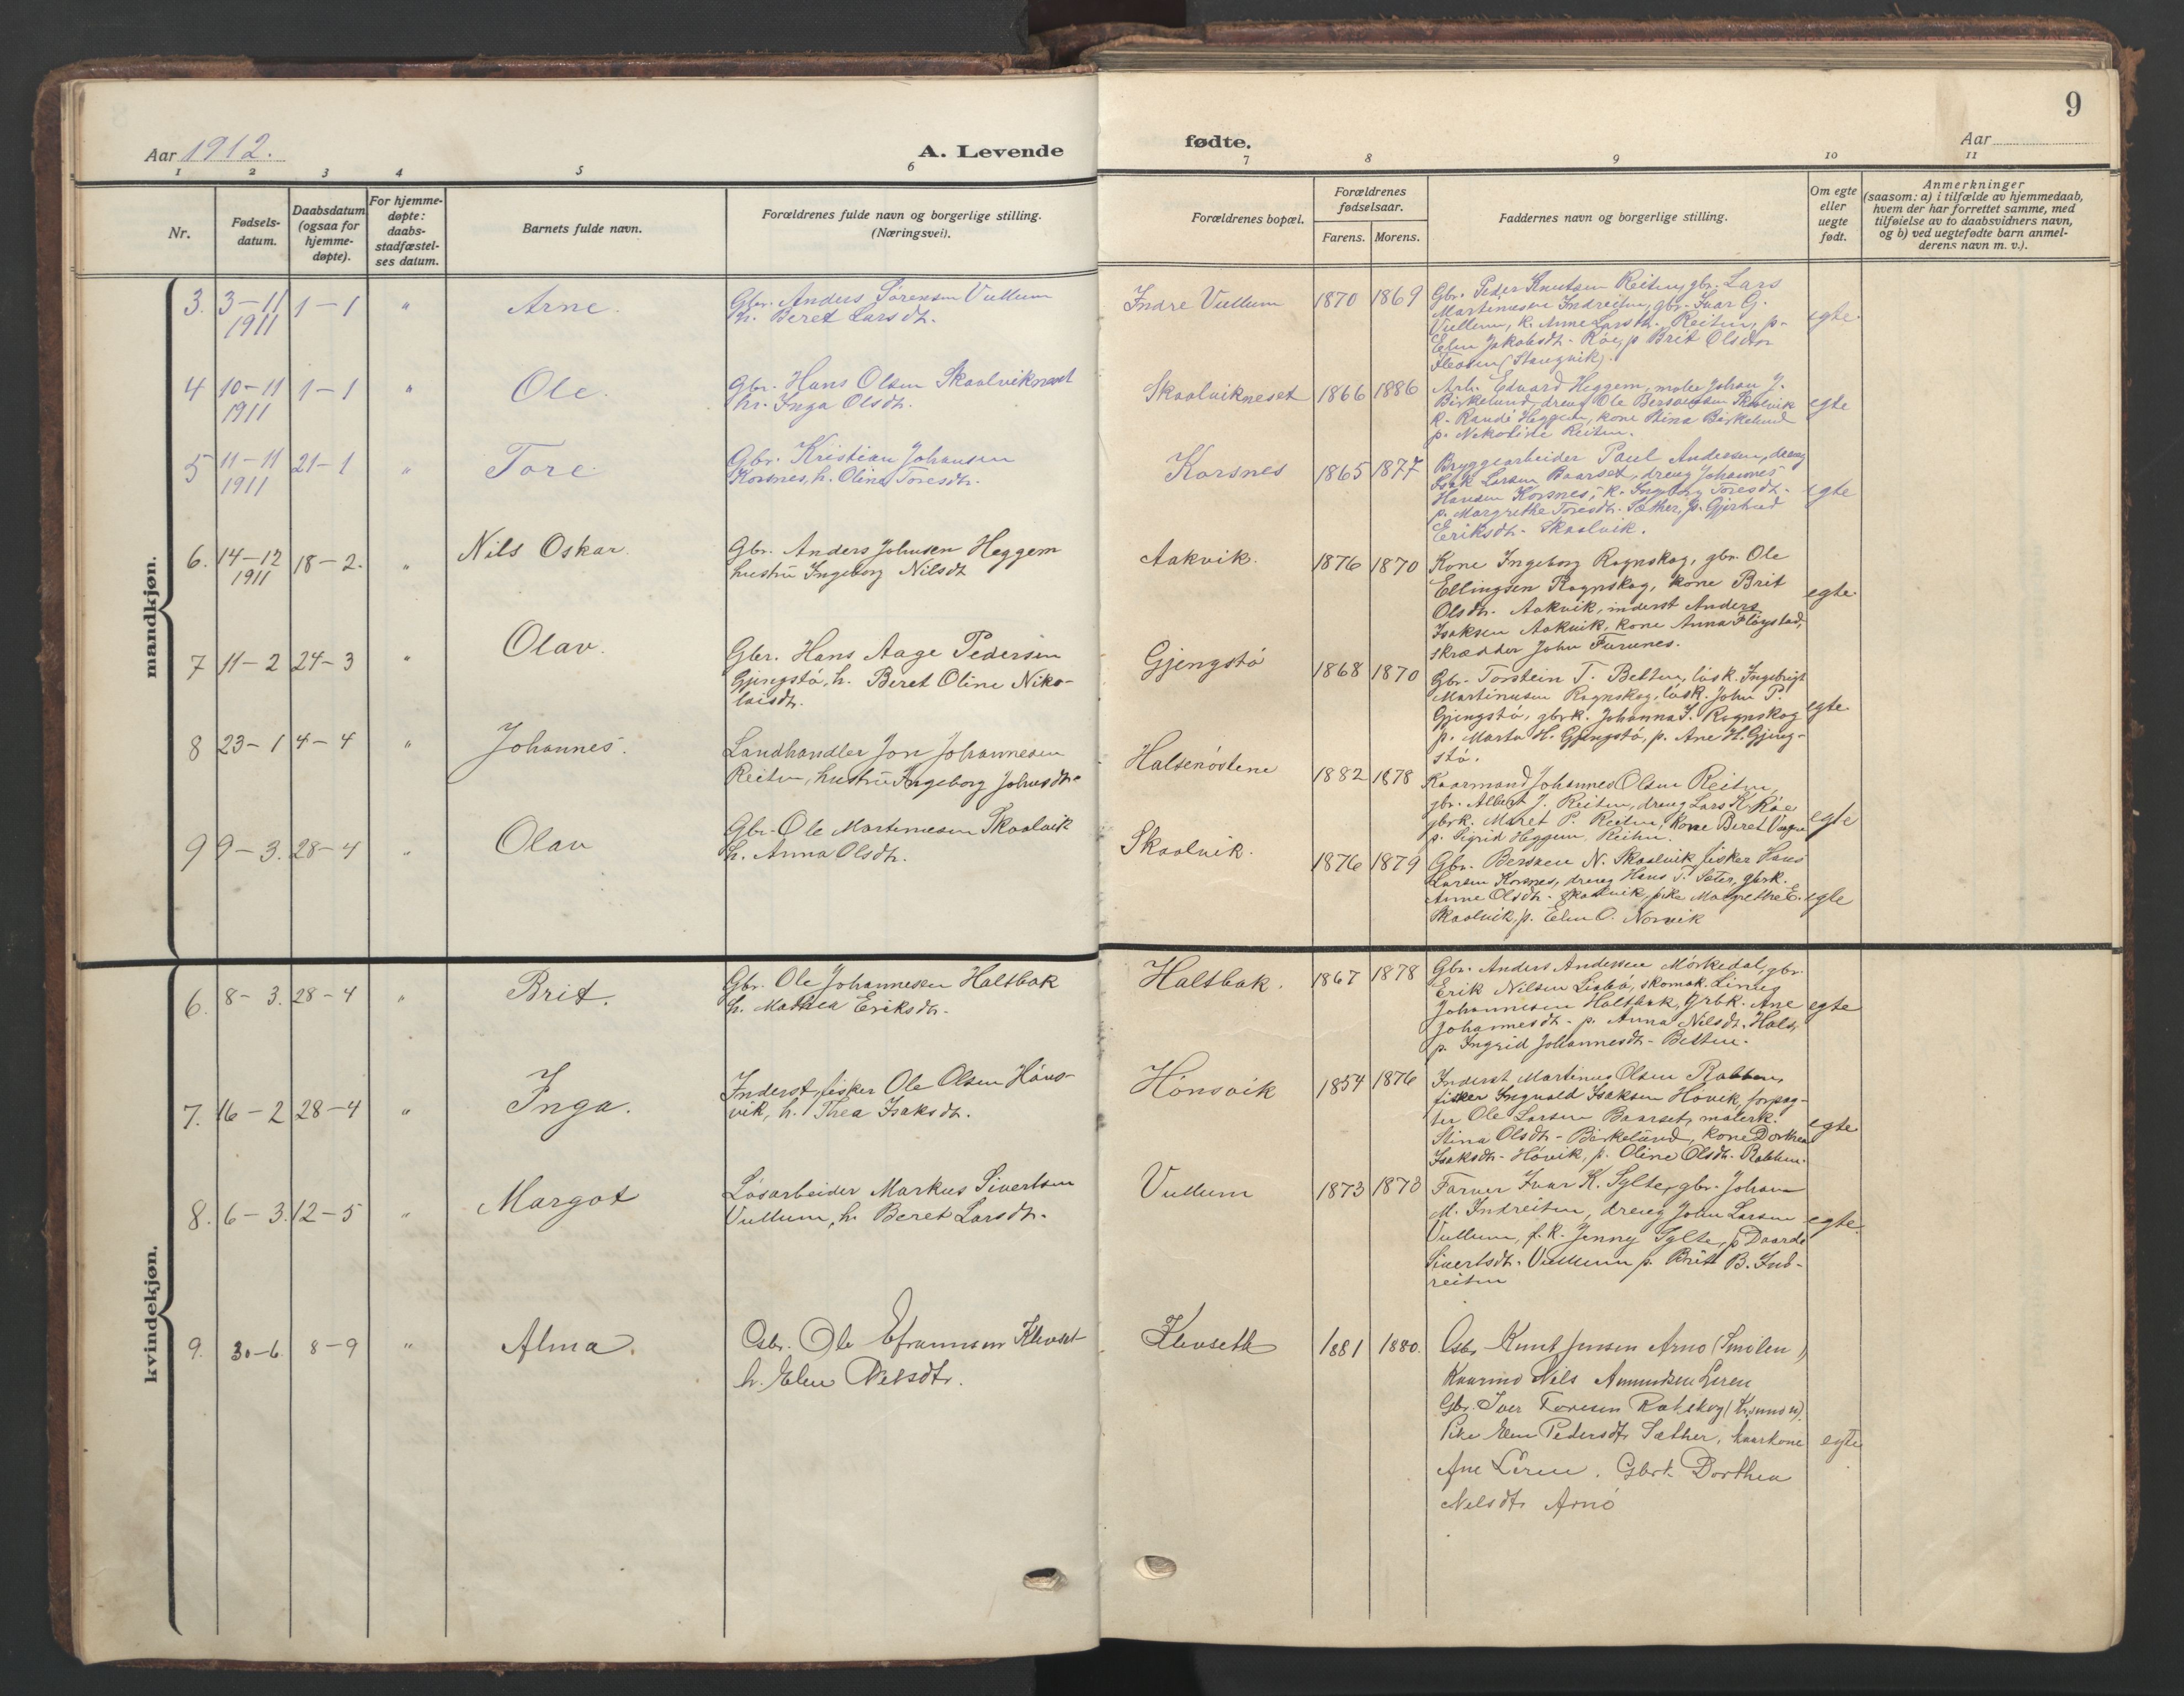 9
Aar 1912.
A. Levende
fødte.
Aar
1 2 3 4 5 6 7 8 9 10 11
Nr.
Fødsels-
datum.
Daabsdatum
(ogsaa for
hjemme-
døpte).
For hjemme-
døpte:
daabs-
stadfæstel-
ses datum.
Barnets fulde navn.
Forældrenes fulde navn og borgerlige stilling.
(Næringsvei).
Forældrenes bopæl.
Forældrenes
fødselsaar.
Farens. Morens.
Faddernes navn og borgerlige stilling.
Om egte
eller
uegte
født.
Anmerkninger
(saasom: a) i tilfælde av hjemmedaab,
hvem der har forrettet samme, med
tilføielse av to daabsvidners navn,
og b) ved uegtefødte barn anmel-
derens navn m. v.).
mandkjøn.
3. 3-11 1911 1-1 " Arne.
Gbr. Anders Sørensen Vullum
h. Beret Larsdtr.
Indre Vullum 1870 1869
Gbr. Peder Knutsen Reiten, gbr. Lars
Martinusen Indreiten, gbr. Ivar G.
Vullum, k. Anne Larsdtr. Reiten, p.
Elen Jakobsdtr. Røe, p Brit Olsdtr
(Stangvik).
egte.
4 10-11 1911 1-1 " Ole.
Gbr. Hans Olsen Skaalvikneset
h. Inga Olsdtr.
Skaalvikneset 1866 1886
Arb. Edvard Heggem, maler Johan J.
Birkelund, dreng Ole Bersvensen Skaalvik
k. Randi Heggem, kone Stina Birkelund
p. Nekoline Reiten.
egte
5 11-11 1911 21-1 " Tore
Gbr. Kristian Johansen
Korsnes, h. Oline Toresdtr.
Korsnes 1865 1877
Bryggearbeider Paul Andersen, dreng
Isak Larsen Baarset, dreng Johannes
Hansen Korsnes, k. Ingeborg Toresdtr.
p. Margrethe Toresdtr. Sæther, p. Gjertrud
Eriksdtr. Skaalvik.
egte
6. 14-12 1911 18-2. " Nils Oskar.
Gbr. Anders Johnsen Heggem
hustru Ingeborg Nilsdtr
Aakvik. 1876 1870
Kone Ingeborg Rognskog, gbr. Ole
Ellingsen Rognskog, kone Brit
Olsdtr. Aakvik, inderst Anders
Isaksen Aakvik, kone Anna Fløystad,
skrædder John Furunes.
egte.
7 11-2 24-3 " Olav.
Gbr. Hans Aage Pedersen
Gjengstø, h. Beret Oline Niko-
laisdtr.
Gjengstø 1868 1870
Gbr. Torstein T. Betten, løsk. Ingebrigt
Martinusen Rognskog, løsk. John P.
Gjengstø, gbrk. Johanna I. Rognskog
p. Marta H. Gjengstø, p. Ane H. Gjeng-
stø.
egte.
8 23-1 4-4 " Johannes.
Landhandler Jon Johannesen
Reiten, hustru Ingeborg Johnsdtr.
Halsenøstene 1882 1878
Kaarmand Johannes Olsen Reiten,
gbr. Albert J. Reiten, dreng Lars K. Røe
gbrk. Maret P. Reiten, kone Beret
p. Sigrid Heggem, Reiten.
egte
9 9-3. 28-4 " Olav
Gbr. Ole Martinusen Skaalvik
h. Anna Olsdtr.
Skaalvik. 1876 1879
Gbr. Bersven N. Skaalvik fisker Hans
Larsen Korsnes, dreng Hans T. Sæter, gbrk.
Anne Olsdtr. Skaalvik, pike Margrethe E.
Skaalvik, p. Elen O. Norvik
egte
kvindekjøn.
6. 8-3. 28-4 " Brit.
Gbr. Ole Johannesen Haltbak
h. Mathea Eriksdtr.
Haltbak. 1867 1878
Gbr. Anders Andersen Mørkedal, gbr.
Erik Nilsen Liabø, skomak. Linus
Johannesen Haltbak, gbrk. Ane
Johannesdtr. p. Anna Nilsdtr. Hals,
p. Ingrid Johannesdtr. Betten.
egte
7. 16-2 28-4 " Inga.
Inderst, fisker Ole Olsen Høns-
vik, h. Thea Isaksdtr.
Hønsvik 1854 1876
Inderst Martinus Olsen Rabben,
fisker Ingvald Isaksen Høvik, forpag-
ter Ole Larsen Baarset, malerk.
Stina Olsdtr. Birkelund, kone Dorthea
Isaksdtr. Høvik, p. Oline Olsdtr. Rabben.
egte
8. 6-3. 12-5 " Margot
Løsarbeider Markus Sivertsen
Vullum, h. Beret Larsdtr.
Vullum 1873 1873
Farver Ivar K. Sylte, gbr. Johan
M. Indreiten, dreng John Larsen
Vullum, f. k. Jenny Sylte, p Daarde
Sivertsdtr. Vullum p. Brit B. Ind-
reiten
egte.
9. 30-6. 8-9 " Alma.
Gbr. Ole Eframsen Klevset
h. Elen Nilsdtr.
Klevseth 1881 1880.
Gbr. Knut Jensen Arnø (Smølen)
Kaarmd Nils Amundsen Leren
Gbr. Iver Toresen Rakskog (Kr.sund N).
Pike Elen Pedersdtr Sæther, kaarkone
Ane Leren. Gbrk. Dorthea
Nelsdtr Arnø
egte